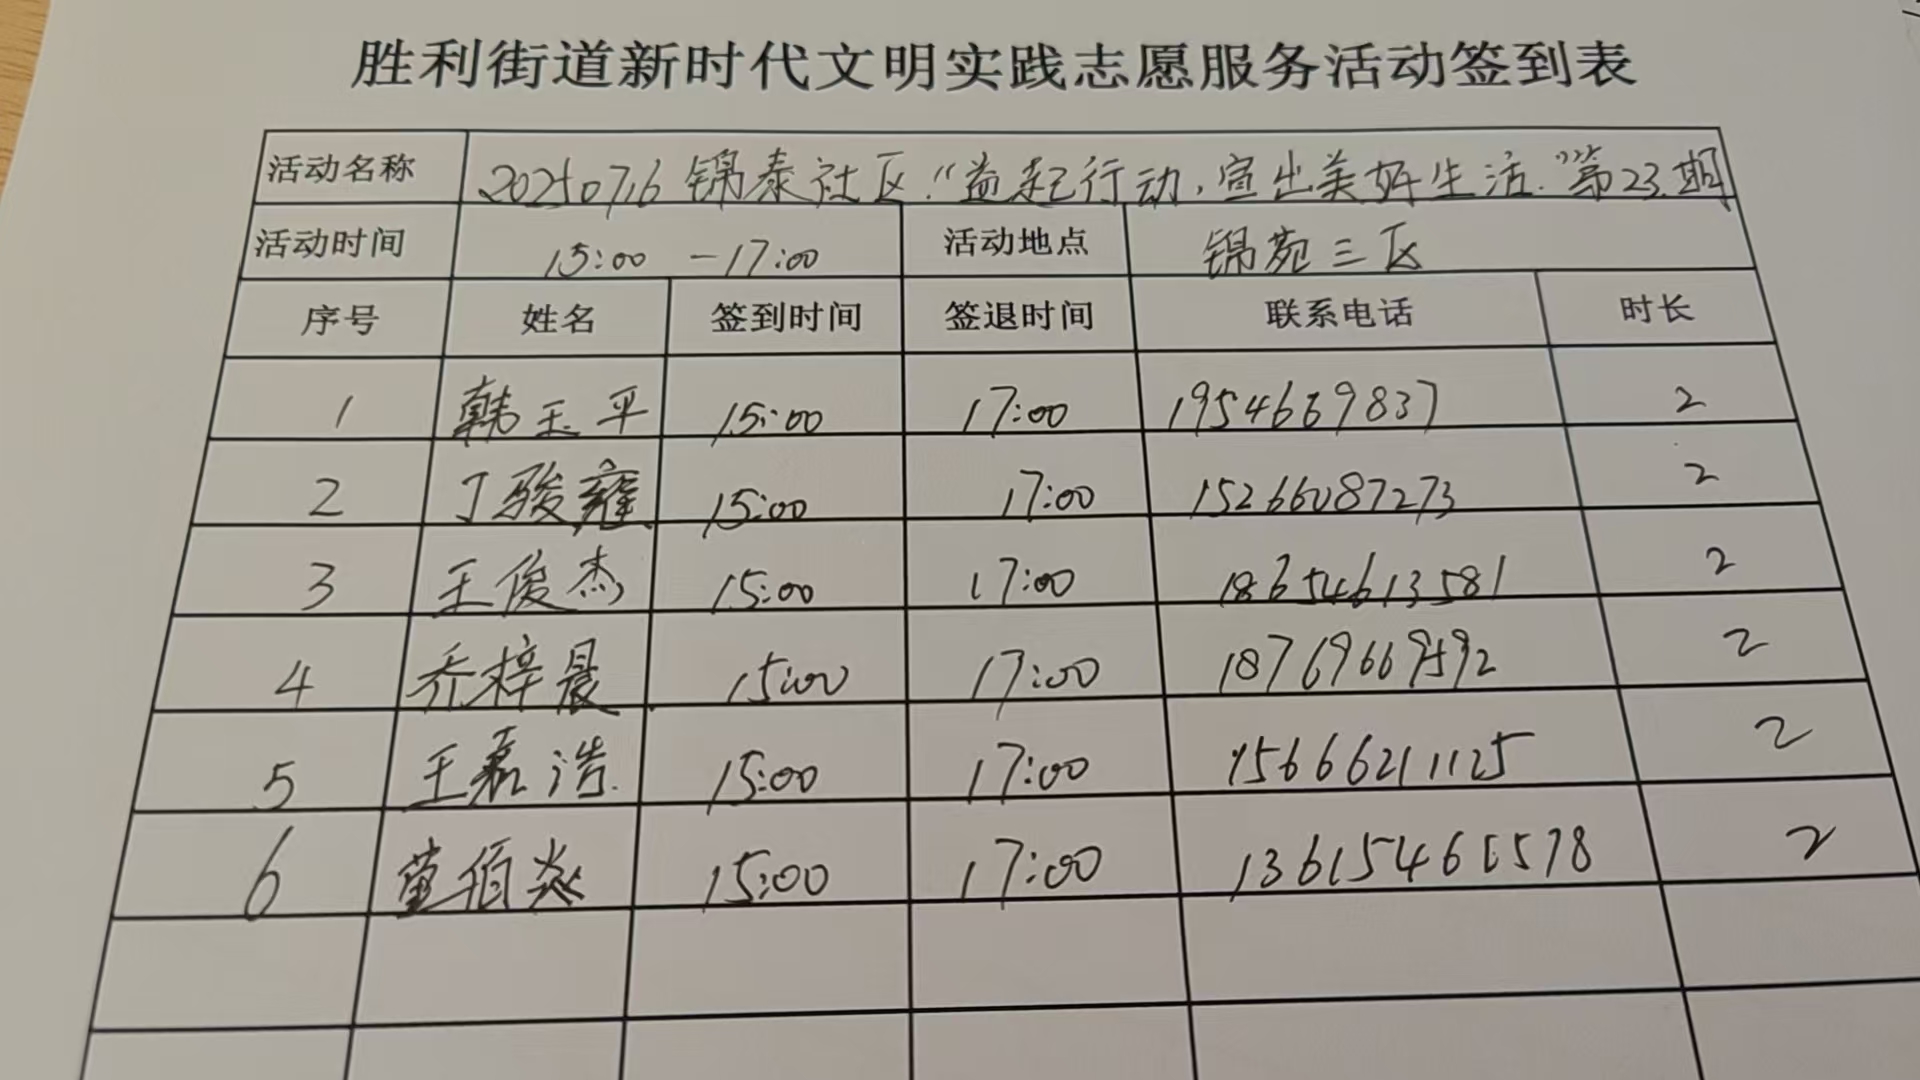 胜利街道新时代文明实践志愿服务活动签到表
活动名称 20250716 锦泰社区“益起行动,宣出美好生活”第23期
活动时间 15:00 -17:00 活动地点 锦苑三区
序号 姓名 签到时间 签退时间 联系电话 时长
1 韩玉平 15:00 17:00 1954669837 2
2 丁骏雍 15:00 17:00 15266087273 2
3 王俊杰 15:00 17:00 18654613581 2
4 乔梓晨 15:00 17:00 18769669592 2
5 王嘉浩 15:00 17:00 15666211125 2
6 董伯焱 15:00 17:00 2